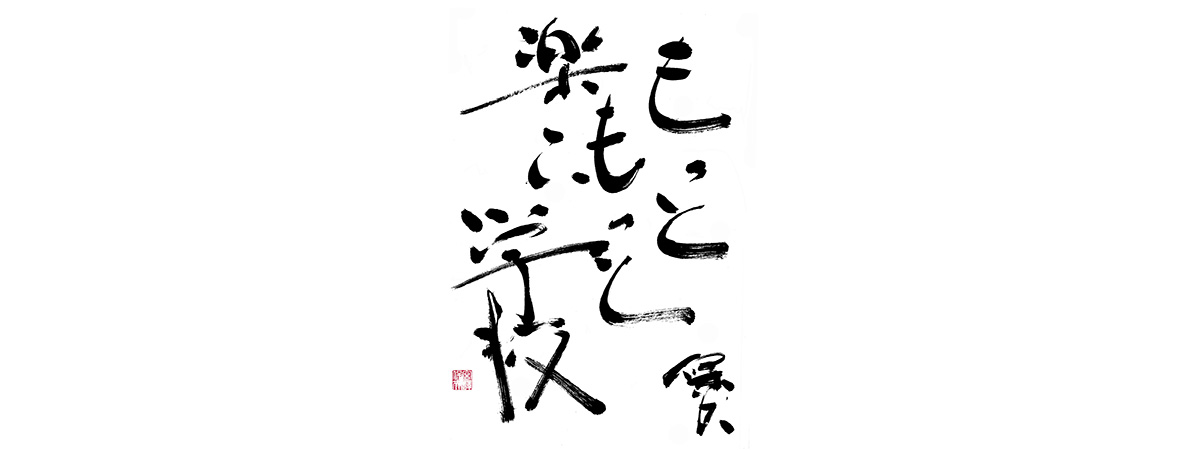 もっと
もっと
楽しい
学校